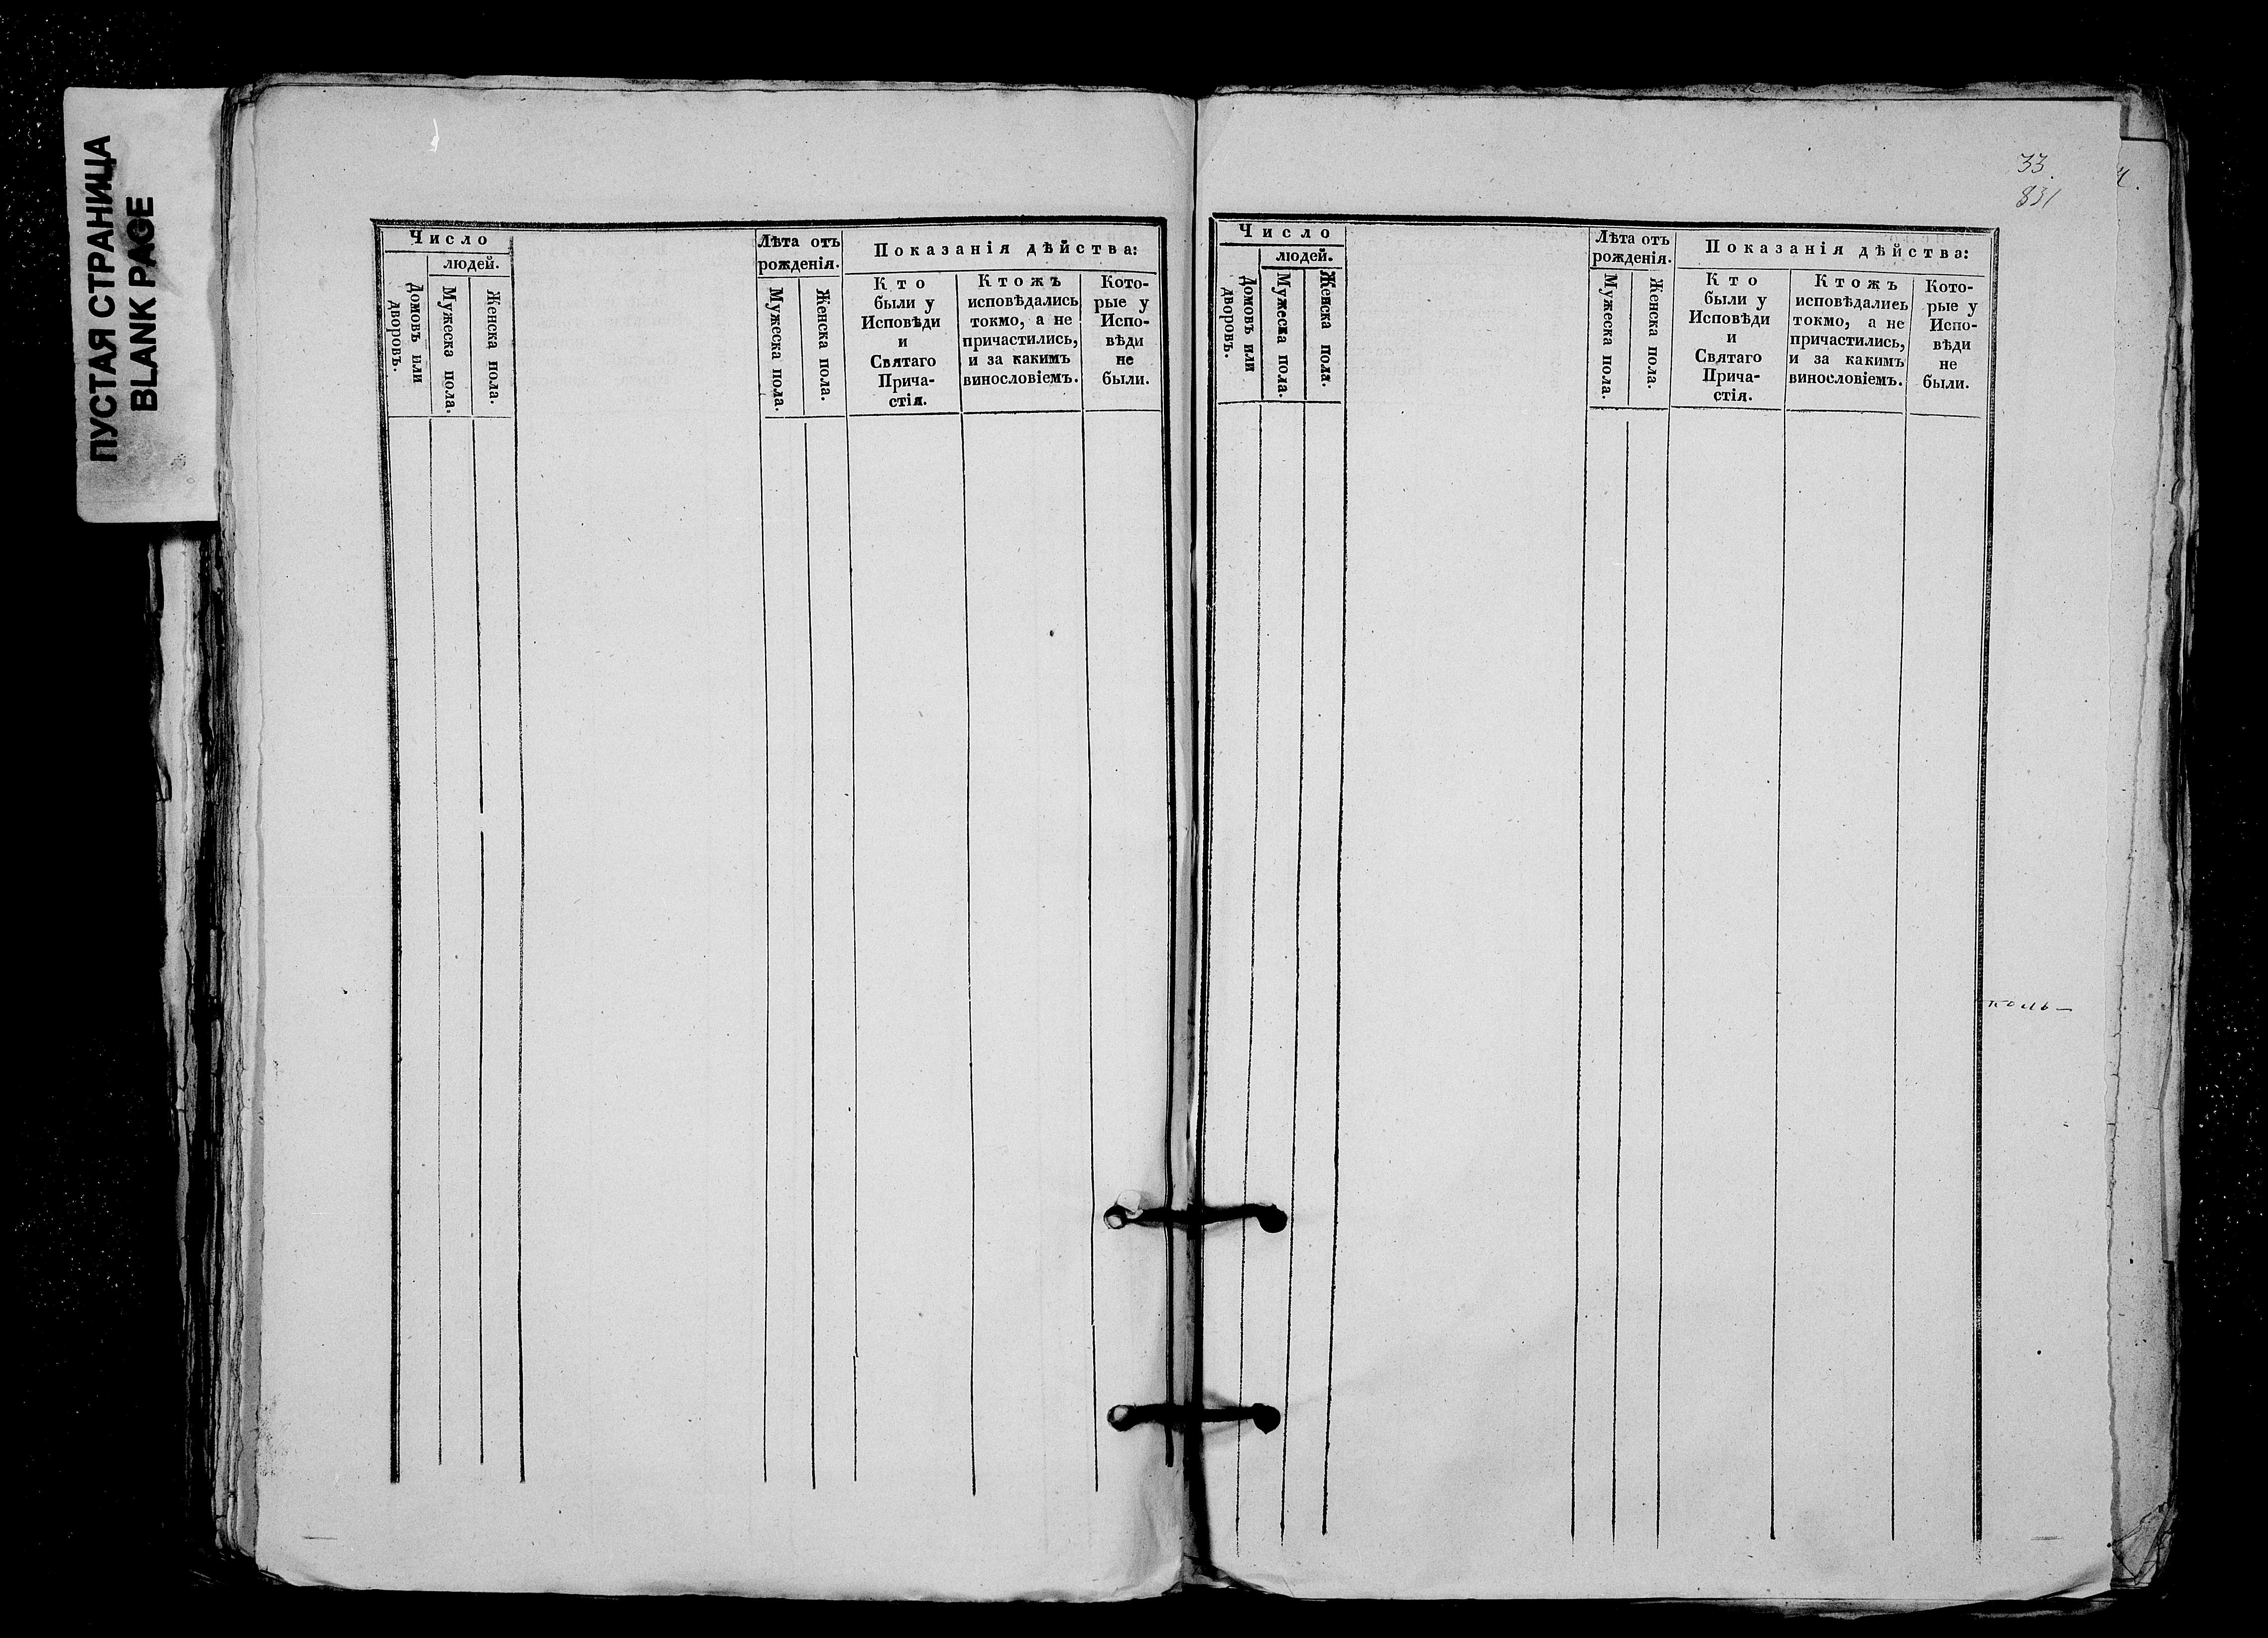 ПУСТАЯ СТРАНИЦА
BLANK PAGE
Число
людей.
Домовъ или дворовъ.
Мужеска пола.
Женска пола.
Лѣта отъ
рожденія.
Мужеска пола.
Женска пола.
Показанія дѣйства:
Кто
были у
Исповѣди
и
Святаго
Прича-
стія.
Ктожъ
исповѣдались
токмо, а не
причастились,
и за какимъ
винословіемъ.
Кото-
рые у
Испо-
вѣди
не
были.
33.
831
Число
людей.
Домовъ или дворовъ.
Мужеска пола.
Женска пола.
Лѣта отъ
рожденія.
Мужеска пола.
Женска пола.
Показанія дѣйства:
Кто
были у
Исповѣди
и
Святаго
Прича-
стія.
Ктожъ
исповѣдались
токмо, а не
причастились,
и за какимъ
винословіемъ.
Кото-
рые у
Испо-
вѣди
не
были.